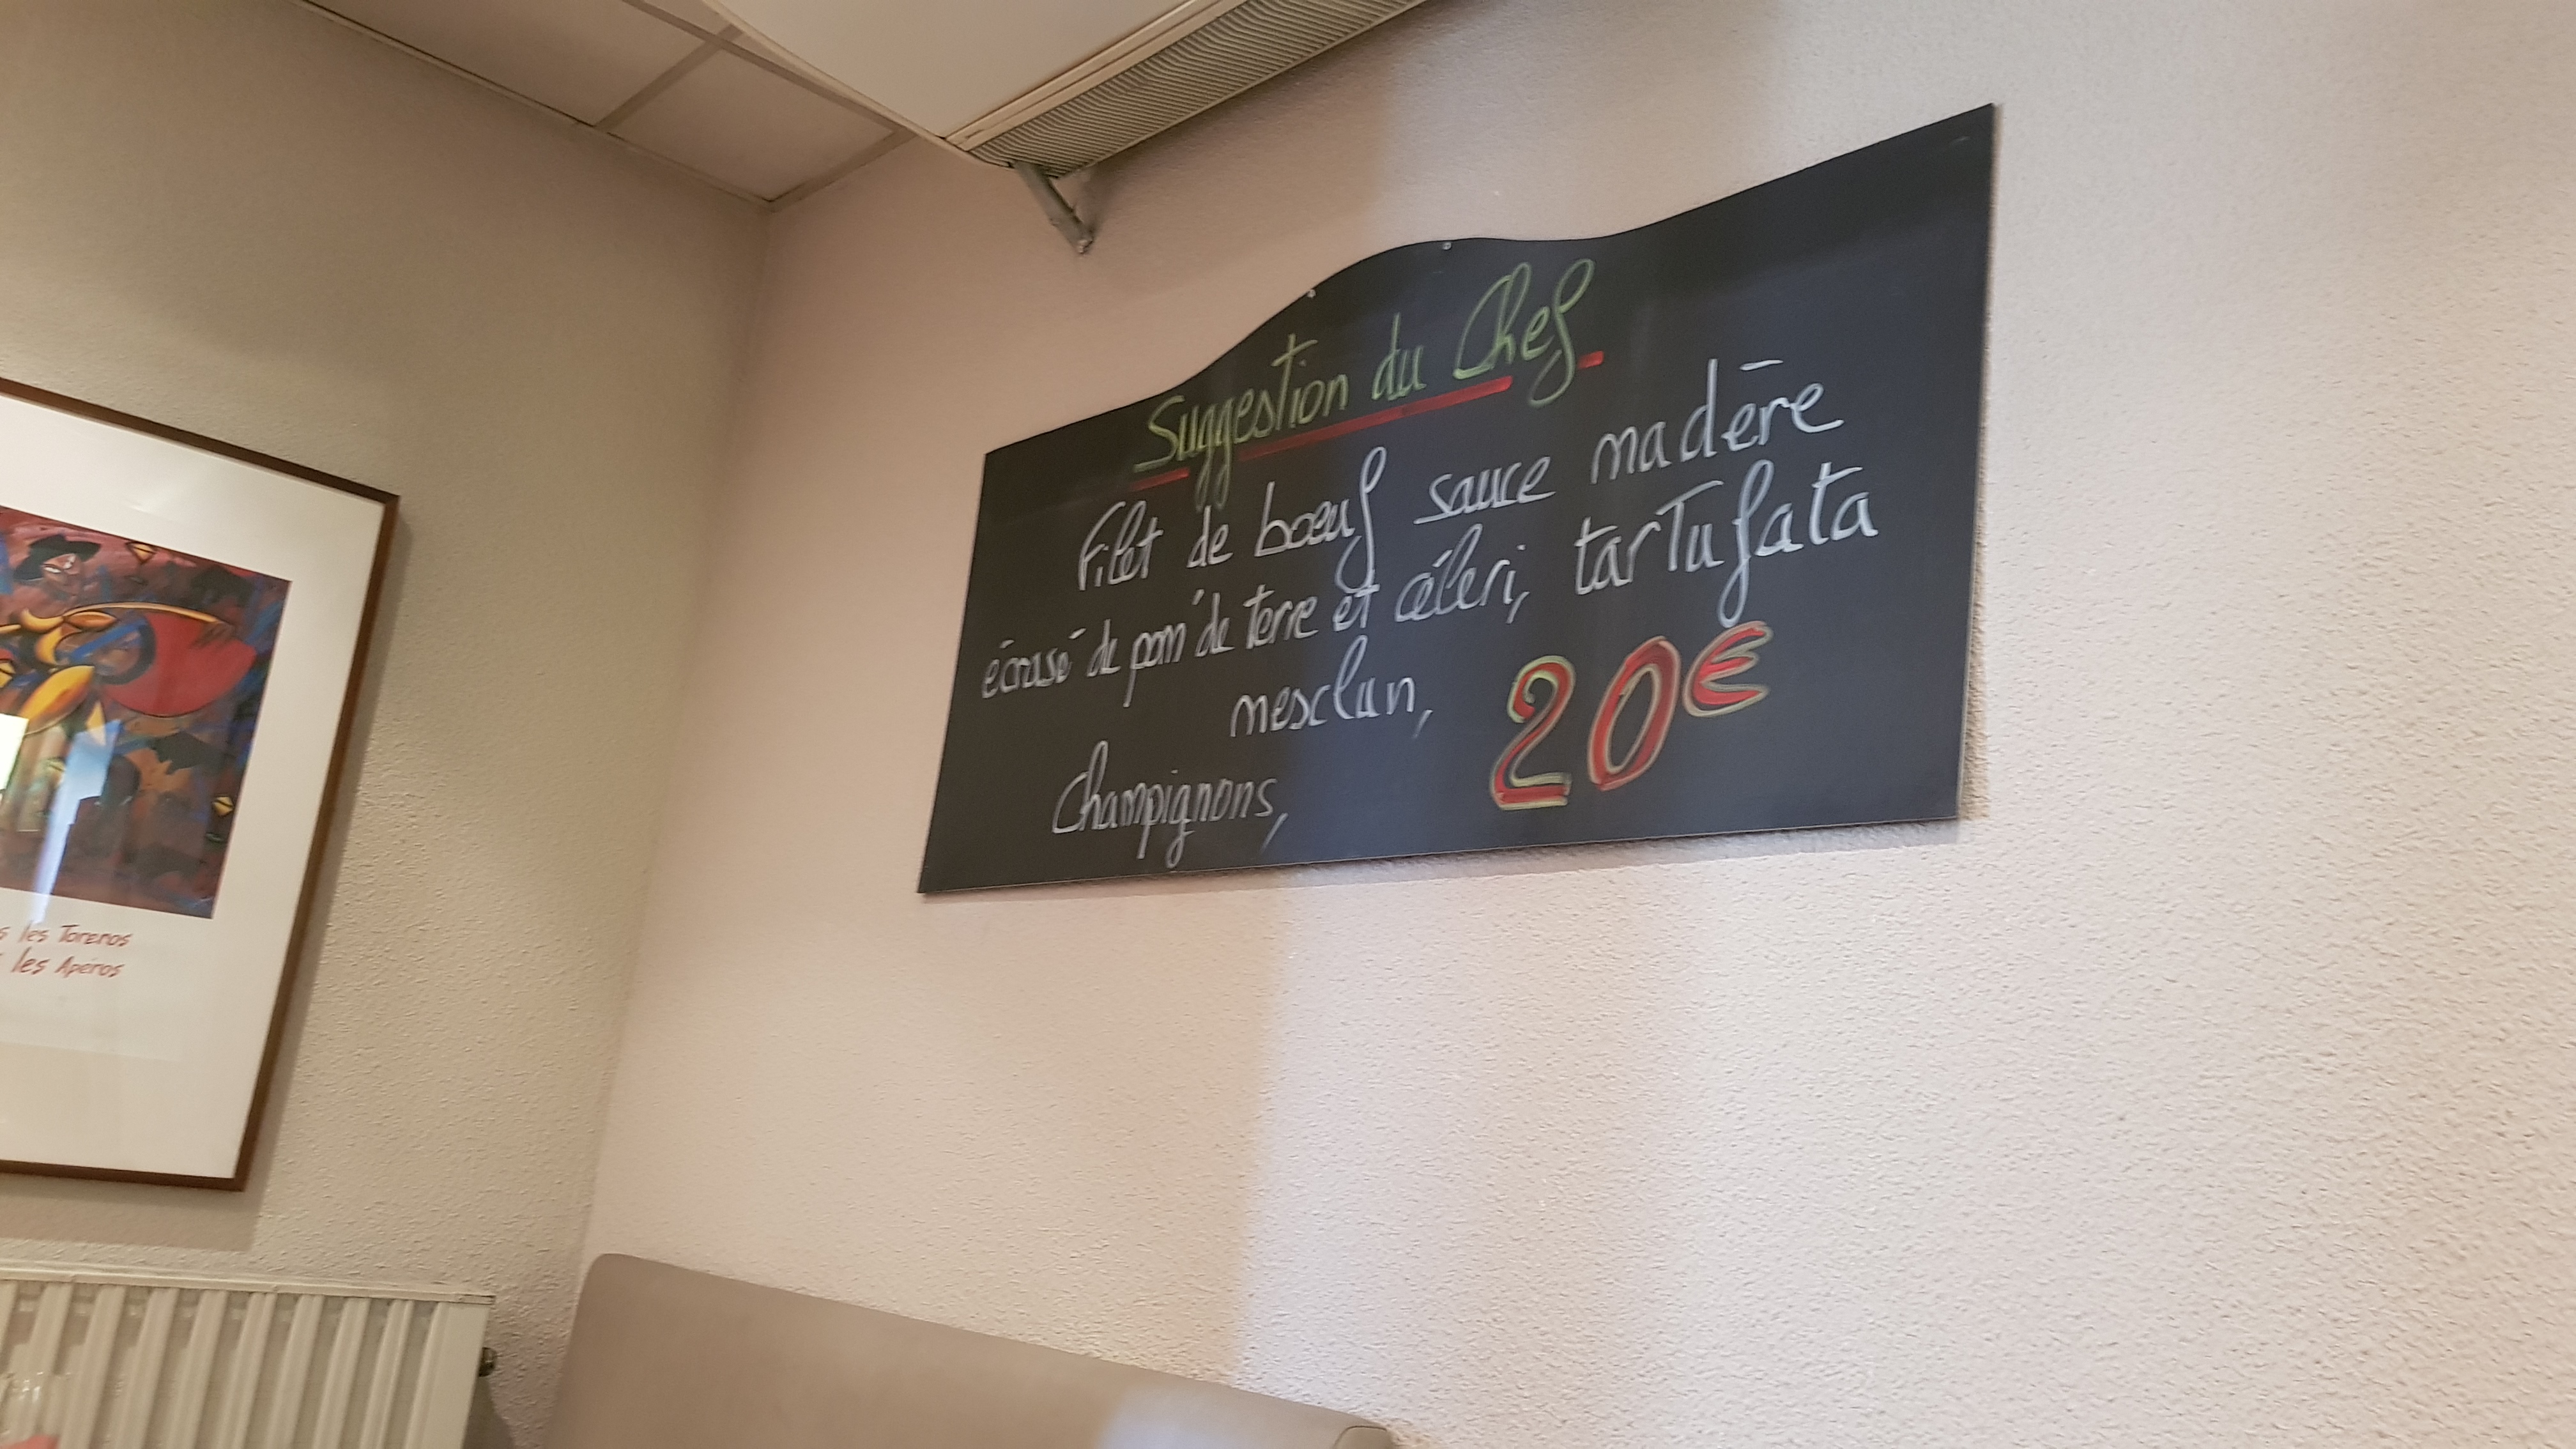 Suggestion du Chef
Filet de bœuf sauce madère
écrasé de pom' de terre et céleri, tartufata
mesclun,
Champignons,
20€
les Toreros
les Apéros